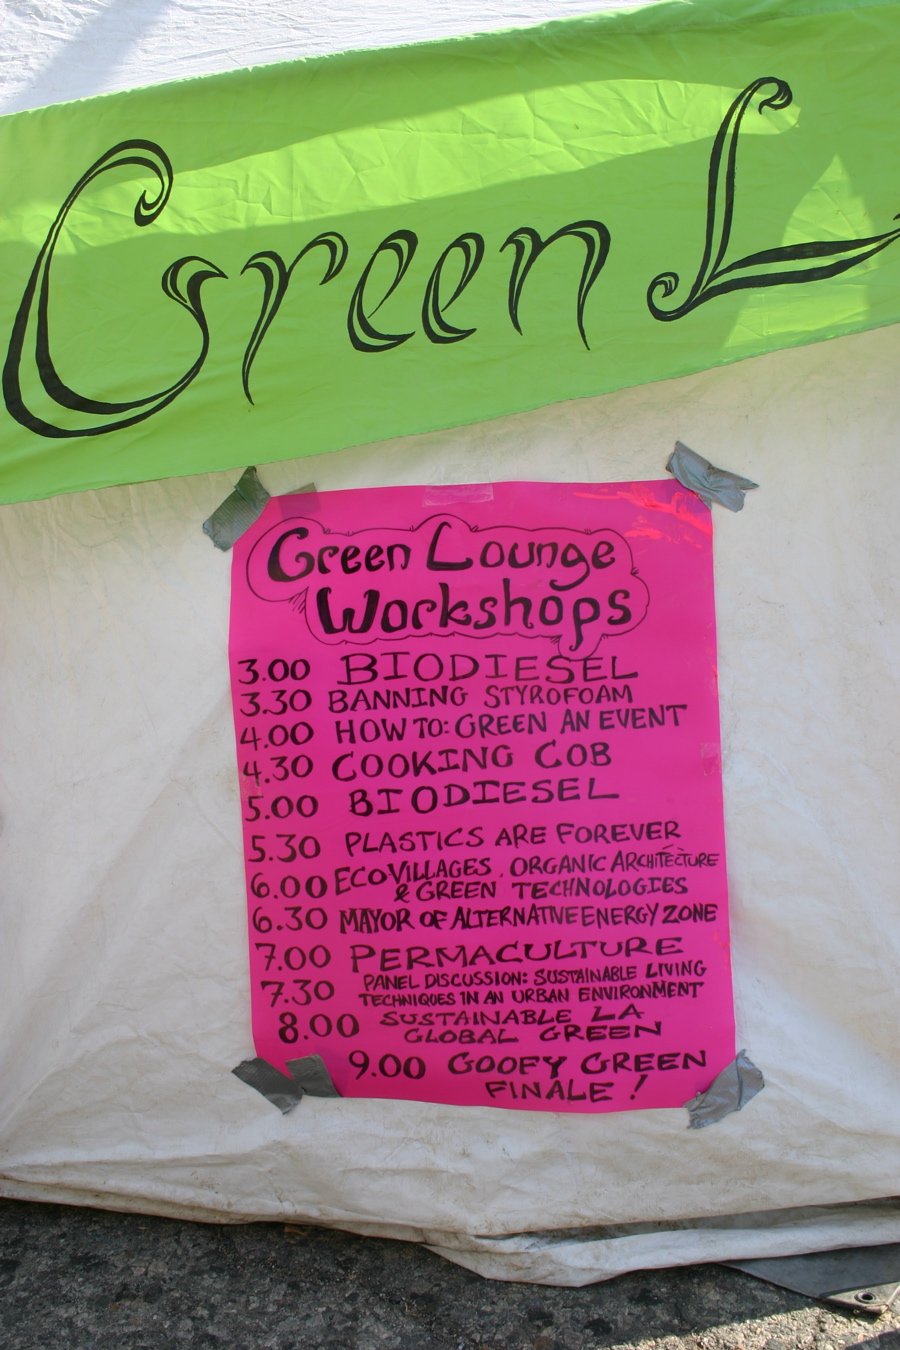 Green L
Green Lounge
Workshops
3.00 BIODIESEL
3.30 BANNING STYROFOAM
4.00 HOW TO: GREEN AN EVENT
4.30 COOKING COB
5.00 BIODIESEL
5.30 PLASTICS ARE FOREVER
6.00 ECOVILLAGES, ORGANIC ARCHITECTURE
& GREEN TECHNOLOGIES
6.30 MAYOR OF ALTERNATIVE ENERGY ZONE
7.00 PERMACULTURE
7.30 PANEL DISCUSSION: SUSTAINABLE LIVING
TECHNIQUES IN AN URBAN ENVIRONMENT
8.00 SUSTAINABLE LA
GLOBAL GREEN
9.00 GOOFY GREEN
FINALE!